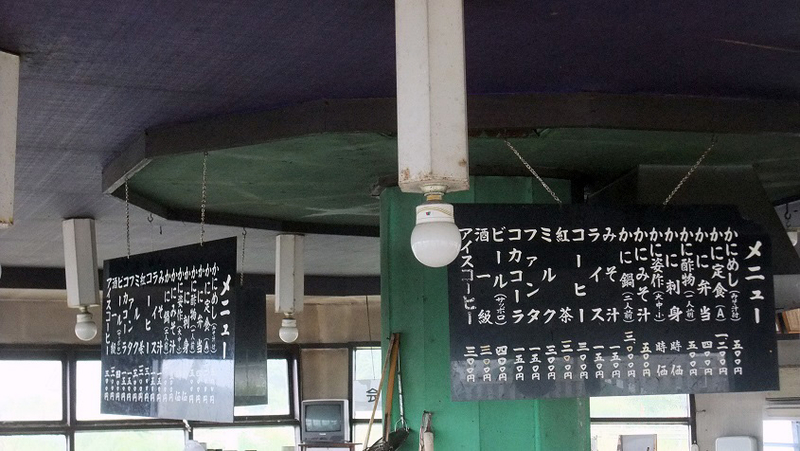 メニュー
かにめし (みそ汁付) 五〇〇円
かに定食 (A) 一二〇〇円
かに弁当 四〇〇円
かに酢物 (一人前) 五〇〇円
かに刺身 時価
かに姿作 (大中小) 時価
かにみそ汁 五〇〇円
かに鍋 (一人前) 三〇〇〇円
みそ汁 一五〇円
ライス 一五〇円
コーヒー 三〇〇円
紅茶 三〇〇円
ミルク 二〇〇円
ファンタ 一五〇円
コカコーラ 一五〇円
ビール (サッポロ) 四〇〇円
酒一級 三〇〇円
アイスコーヒー 三〇〇円
会
メニュー
かにめし
かに定食 (A)
かに弁当
かに酢物
かに刺身
かに姿作
かにみそ汁
かに鍋
みそ汁
ライス
コーヒー
紅茶
ミルク
ファンタ
コカコーラ
ビール
酒一級
アイスコーヒー